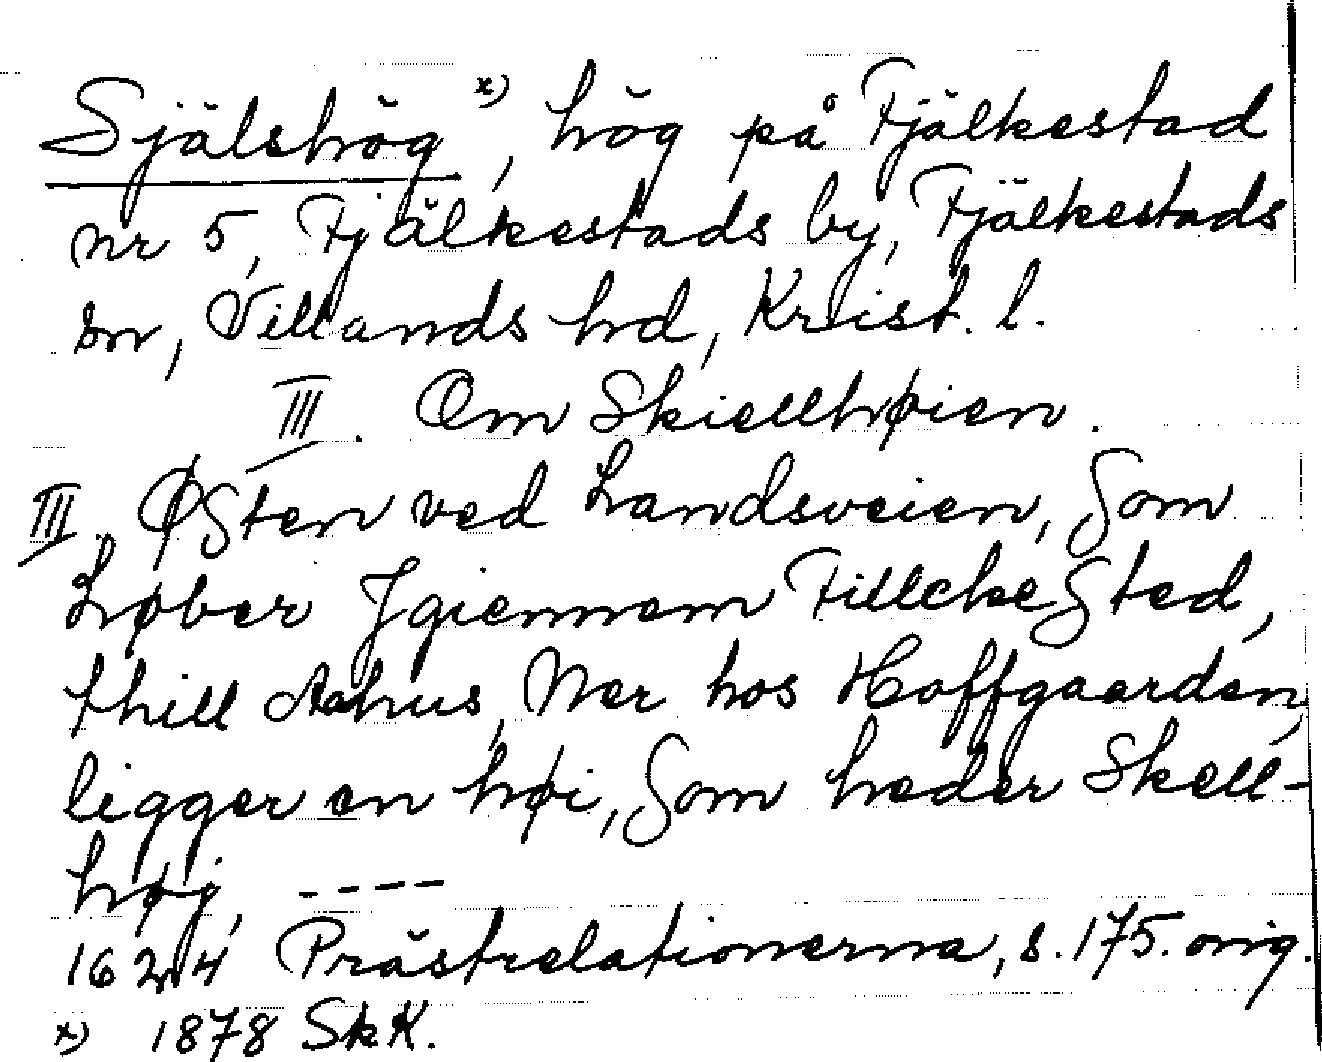 Själshög x), hög på Fjälkestad
nr 5, Fjälkestads by, Fjälkestads
sn, Villands hd, Krist. l.
III. Om Skiellhøien.
III. Østen ved Landsveien, Som
Løber Jgiennem FillckeSted,
thill Aahus, Ner hos Hoffgaarden,
ligger en høi, Som heder Skell-
høj, ----
1624 Prästrelationerna, s. 175. orig.
x) 1878 SkK.